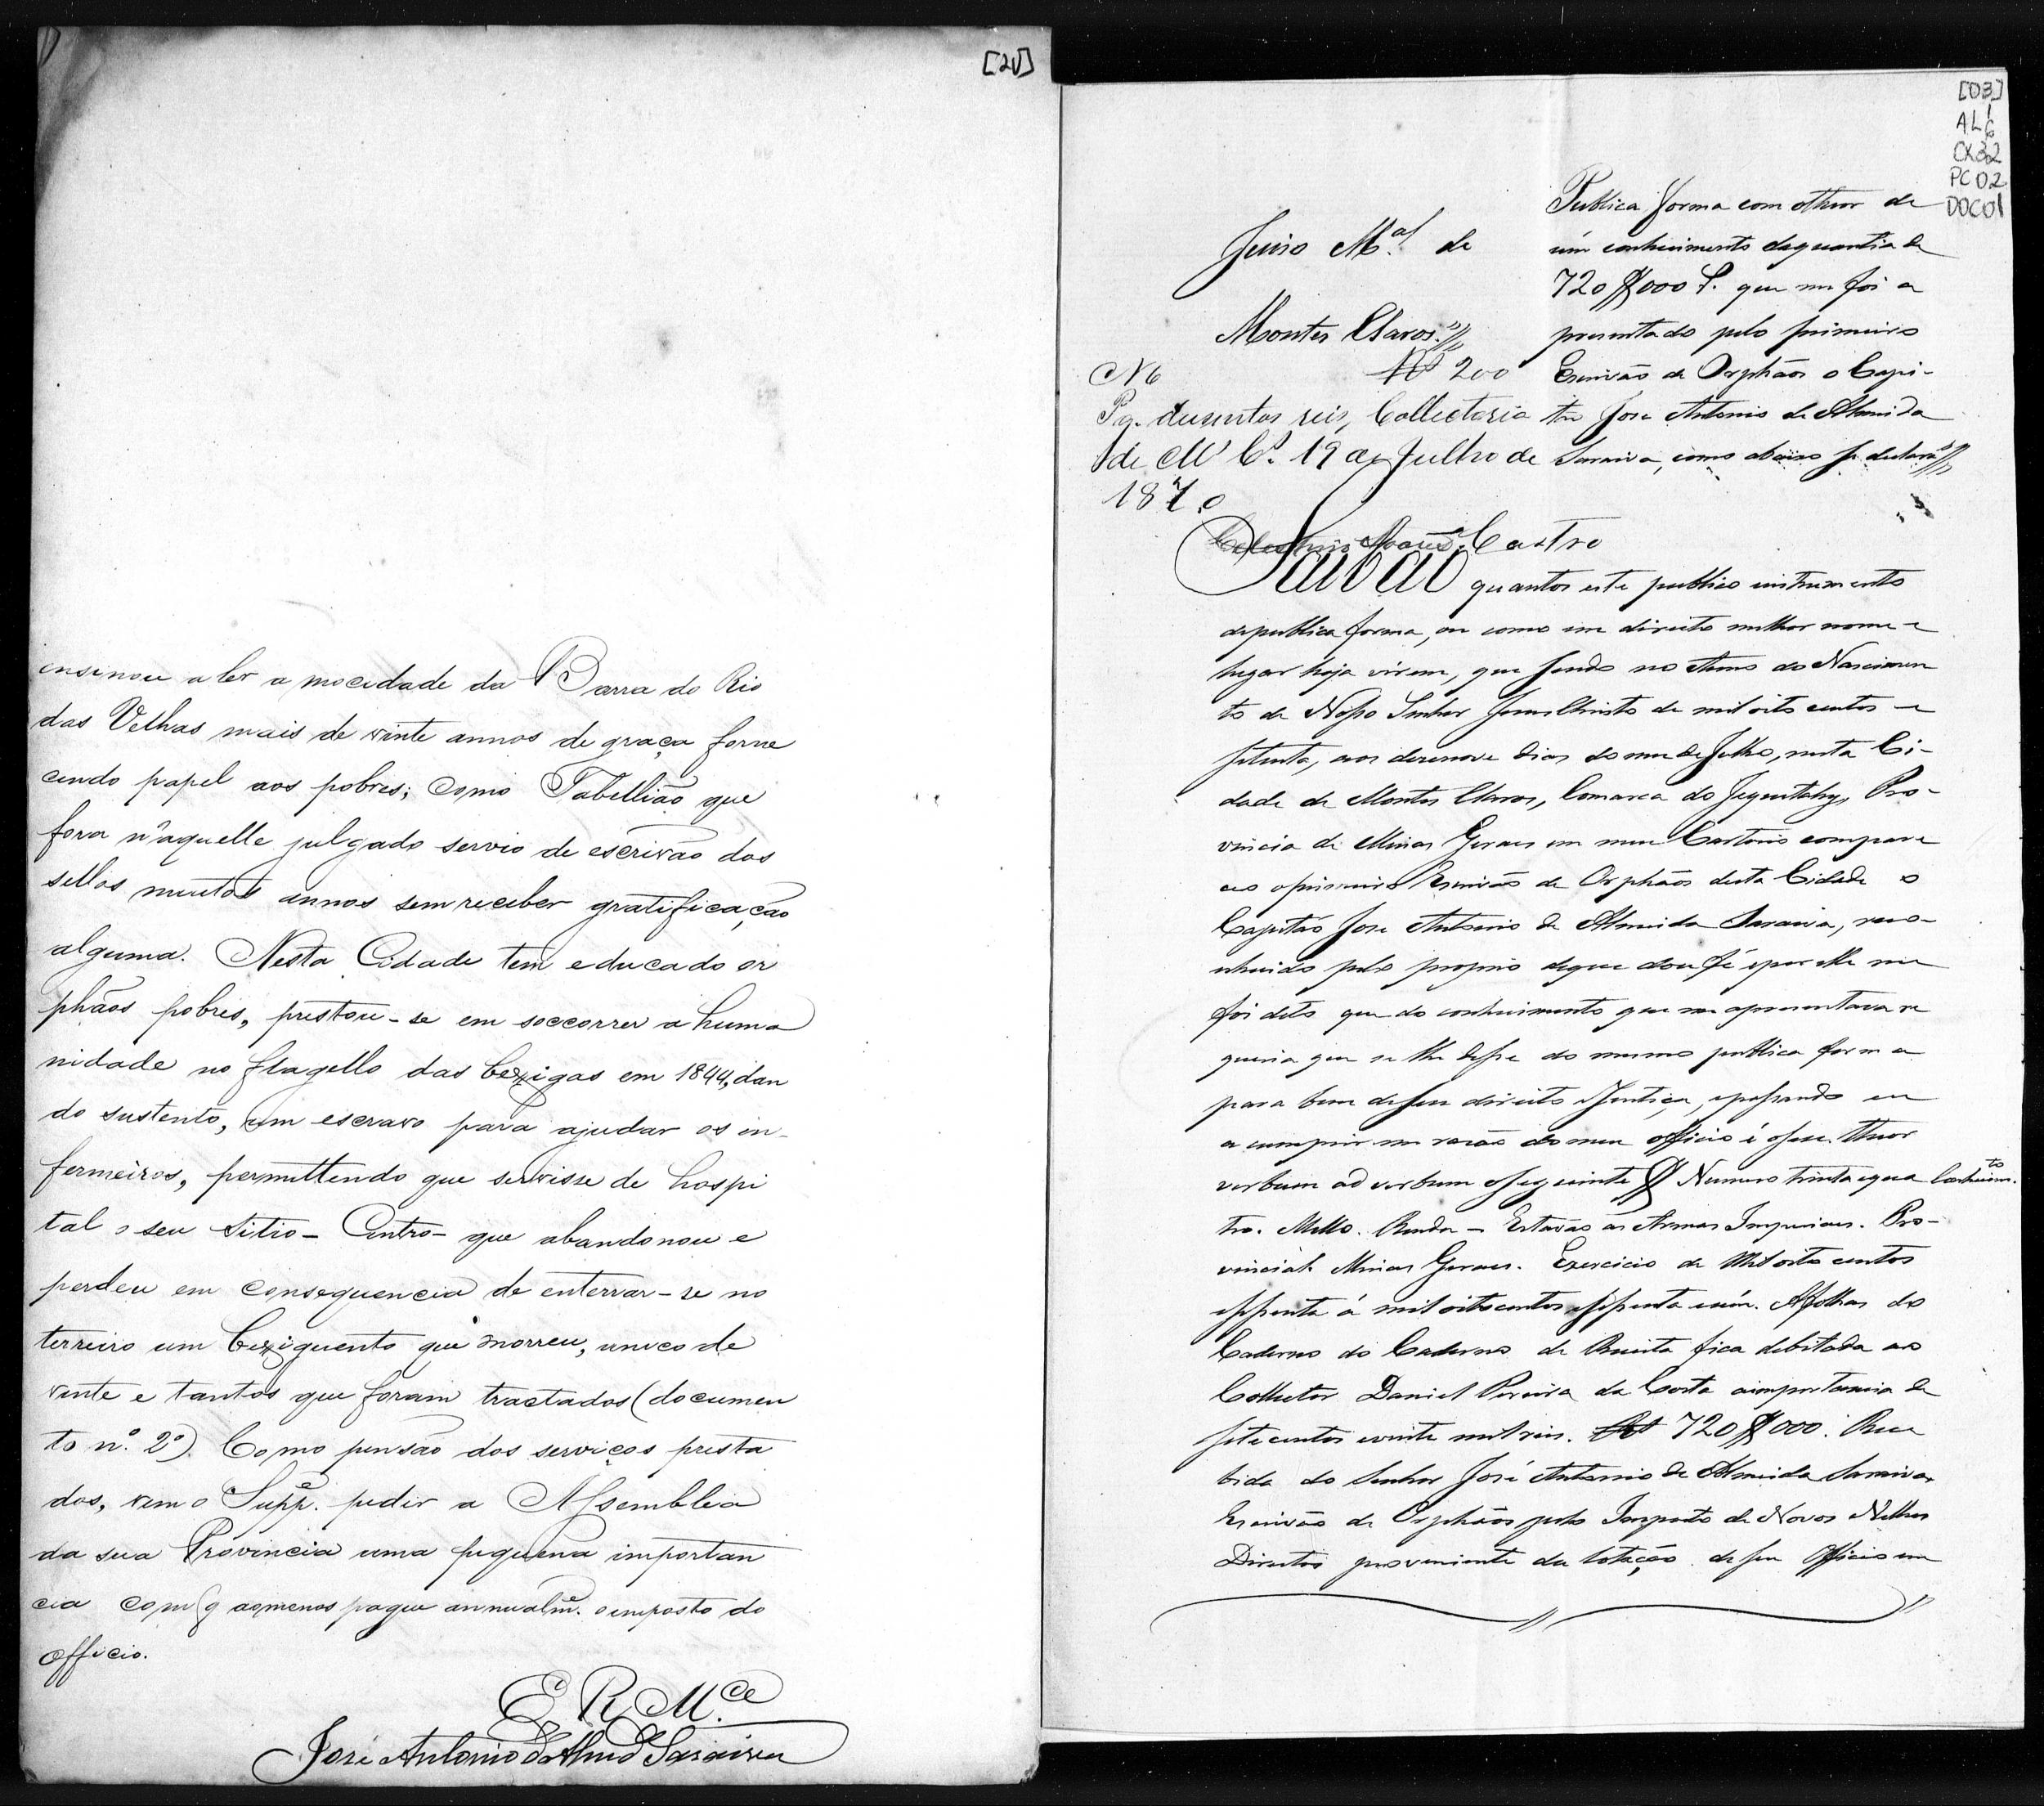 [2V]
ensinou a ler a mocidade da Barra do Rio
das Velhas mais de vinte annos de graça forne
cendo papel aos pobres; como Tabellião que
fora n'aquelle julgado servio de escrivão dos
sellos muitos annos sem receber gratificação
alguma. Nesta Cidade tem educado or
phãos pobres, prestou-se em soccorrer a huma
nidade no flagello das bexigas em 1844, dan
do sustento, um escravo para ajudar os in-
fermeiros, permittendo que servisse de hospi
tal o seu sitio - Cintro - que abandonou e
perdeu em consequencia de enterrar-se no
terreiro um bexiguento que morreu, unico de
vinte e tantos que foram tractados (documen
to nº. 2º). Como pensão dos serviços presta
dos, vem o Suppe. pedir a Assemblea
da sua Provincia uma pequena importan
cia com q ao menos pague annualme. o imposto do
officio.
E. R. Mce
José Antonio d'Almda Saraiva
[03]
AL1
CX32
PC02
DOC01
Juiso Mal. de
Montes Claros.
Nº 200
Pg. dusentos reis, Collectoria
de M Cs. 19 de Julho de
1870
Castro
Publica forma com otheor de
um conhecimento da quantia de
720$000 r. que me foi a
presentado pelo primeiro
Escrivão de Orphãos o Capi-
tão Jose Antonio de Almeida
Saraiva, como abaixo se declara
Saibão quantos este publico instrumento
de publica forma, ou como em direito milhor nome e
lugar haja virem, que sendo no Anno do Nascimen
to de Nosso Senhor Jesus Christo de mil oito centos e
setenta, aos desenove dias do mes de Julho, nesta Ci-
dade de Montes Claros, Comarca do Jequitahy, Pro-
vincia de Minas Geraes em meu Cartorio compare
ceo o primeiro Escrivão de Orphãos desta Cidade o
Capitão Jose Antonio de Almeida Saraiva, reco-
nhecido pelo proprio de que dou fé e por elle me
foi dito que do conhecimento que me apresentava re
queria que se lhe desse do mesmo publica forma
para bem de seu direito e Justiça, e passando eu
a cumprir em rasão do meu officio é o seu theor
verbum ad verbum o seguinte $ Numero trinta e qua Conhecimto.
tro. Mello. Renda - Estavão as Armas Imperiaes. Pro-
vincial. Minas Geraes. Exercicio de Mil oito centos
e setenta á mil oitocentos e setenta e um. A folhas do
Caderno do Caderno de Receita fica debitada ao
Collector Daniel Pereira da Costa a importancia de
sete centos e vinte mil reis. Rs 720$000. Rece
bida do Senhor José Antonio de Almeida Saraiva
Escrivão de Orphãos pelo Imposto de Novos e Velhos
Direitos proveniente da lotação de seu Officio em